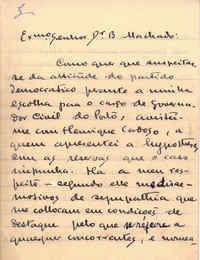 Exmo Senhor Dr B. Machado:
Como quer que suspeitas-
se da attitude do partido
democratico perante a minha
escolha para o cargo de Governa-
dor Civil do Porto, avistei-
me com Henrique Cardoso, a
quem apresentei a
em as reservas que o caso
Ha a meu res-
peito - segundo elle me disse -
motivos de sympathia que
me collocam em condições de
destaque pelo que se refere a
quaesquer concorrentes, e